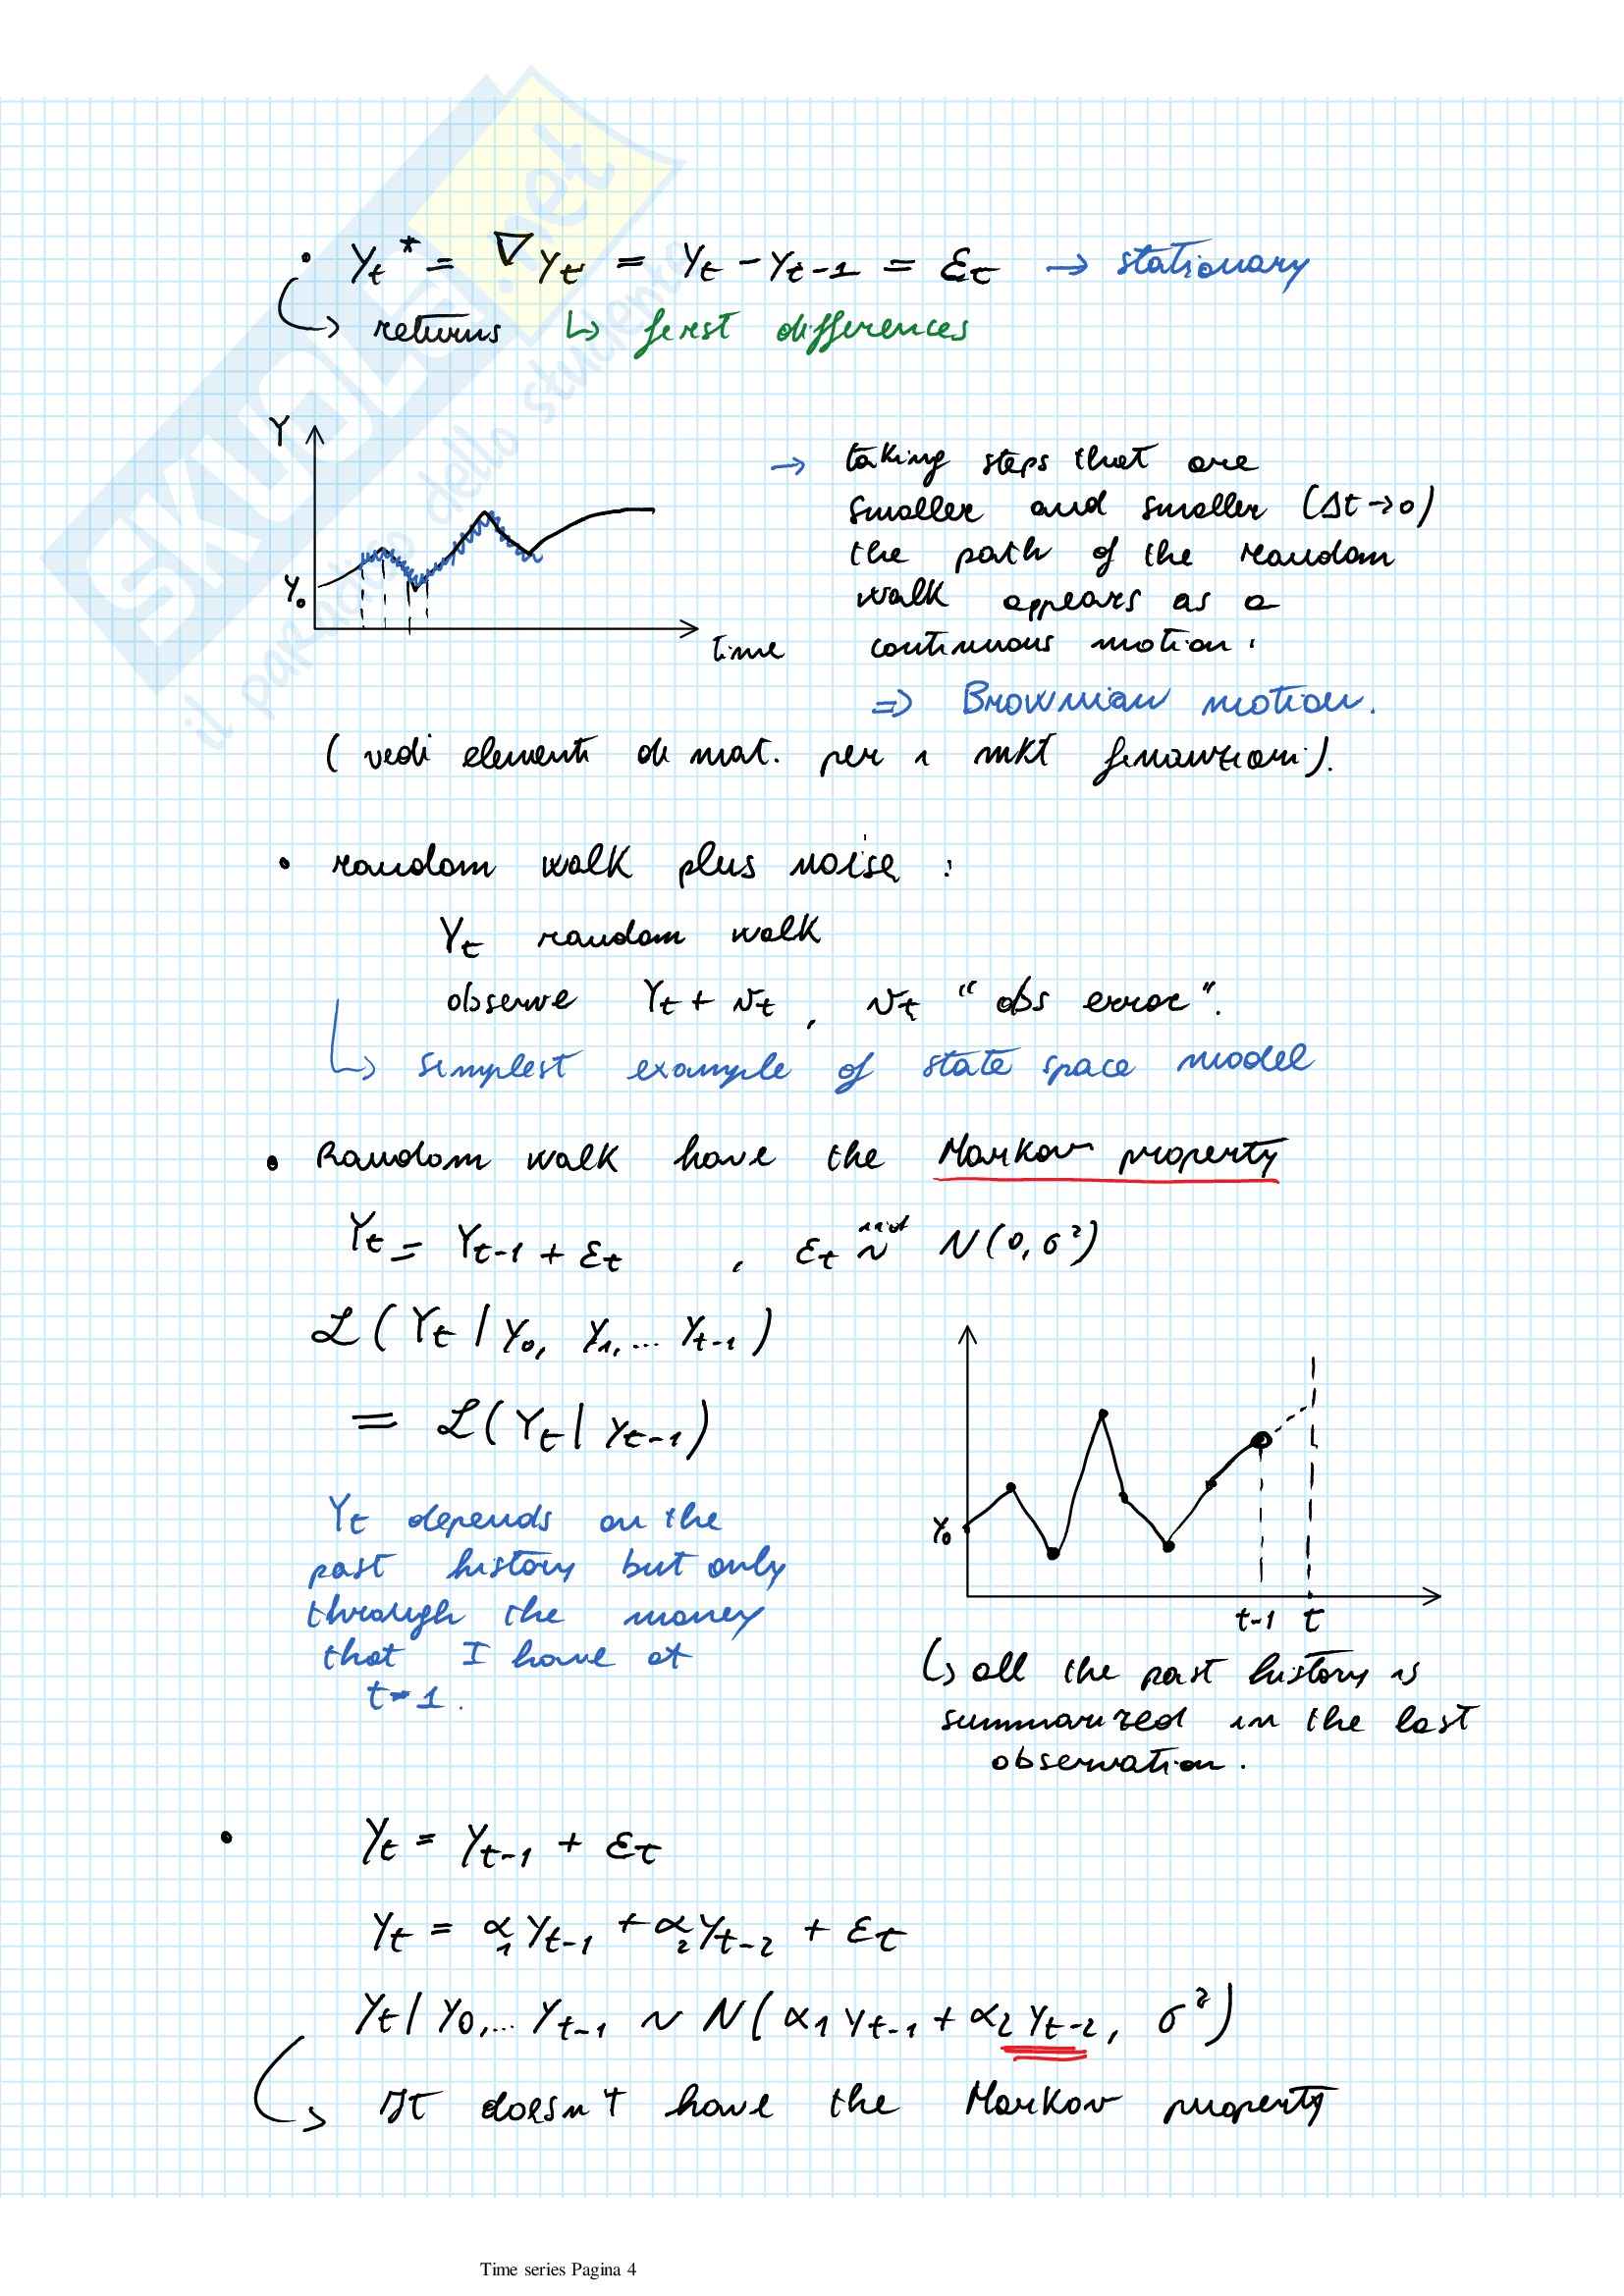 • Yt* = ∇Yt = Yt - Yt-1 = εt → stationary
↳ returns ↳ first differences
Y
Y0
time
→ taking steps that are
smaller and smaller (Δt→0)
the path of the random
walk appears as a
continuous motion:
⇒ Brownian motion.
(vedi elementi di mat. per i mkt finanziari).
• random walk plus noise:
Yt random walk
observe Yt + vt, vt "obs error".
↳ simplest example of state space model
• Random walk have the Markov property
Yt = Yt-1 + εt , εt ~ N(0, σ²)
ℒ(Yt | Y0, Y1, ... Yt-1)
= ℒ(Yt | Yt-1)
Yt depends on the
past history but only
through the money
that I have at
t-1.
Y0
t-1 t
↳ all the past history is
summarized in the last
observation.
• Yt = Yt-1 + εt
Yt = α1 Yt-1 + α2 Yt-2 + εt
Yt | Y0, ... Yt-1 ~ N(α1 Yt-1 + α2 Yt-2, σ²)
↳ It doesn't have the Markov property
Time series Pagina 4
SKUOLA.net
il paradiso dello studente